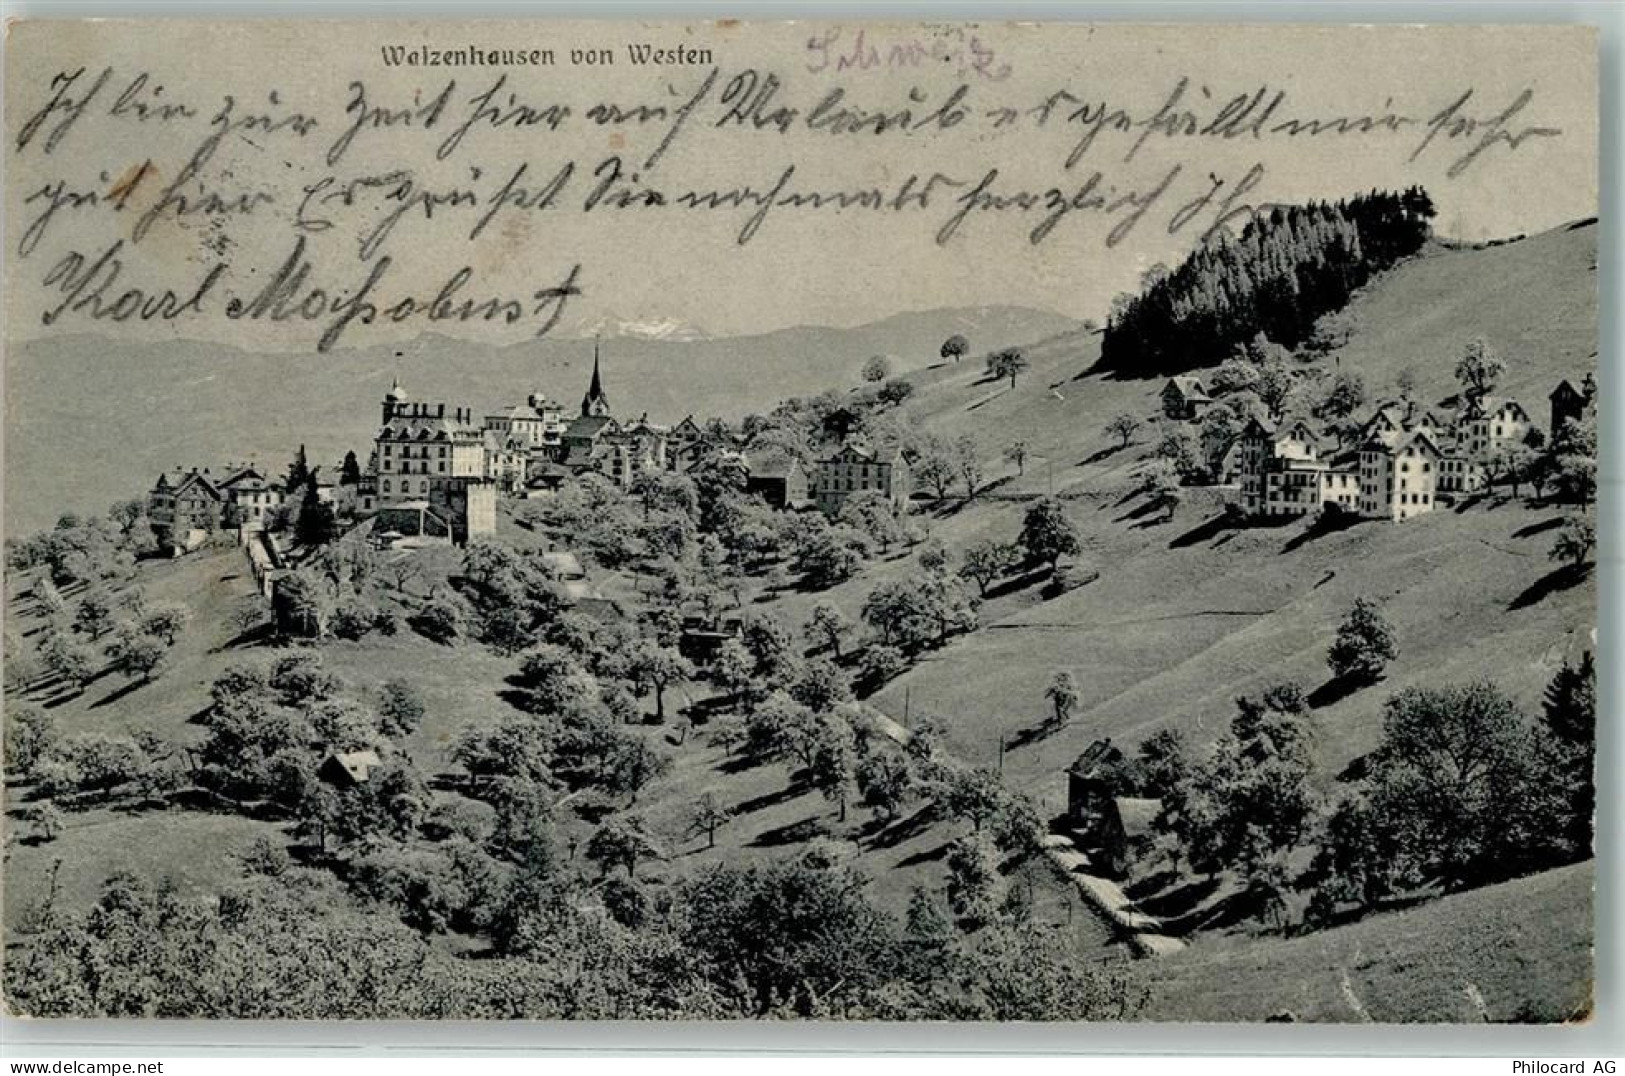 Walzenhausen von Westen
Schweiz
Ich bin zur Zeit hier auf Urlaub es gefällt mir sehr
gut hier Es grüßt Sie nochmals herzlich Ihr
Karl
www.delcampe.net
Philocard AG